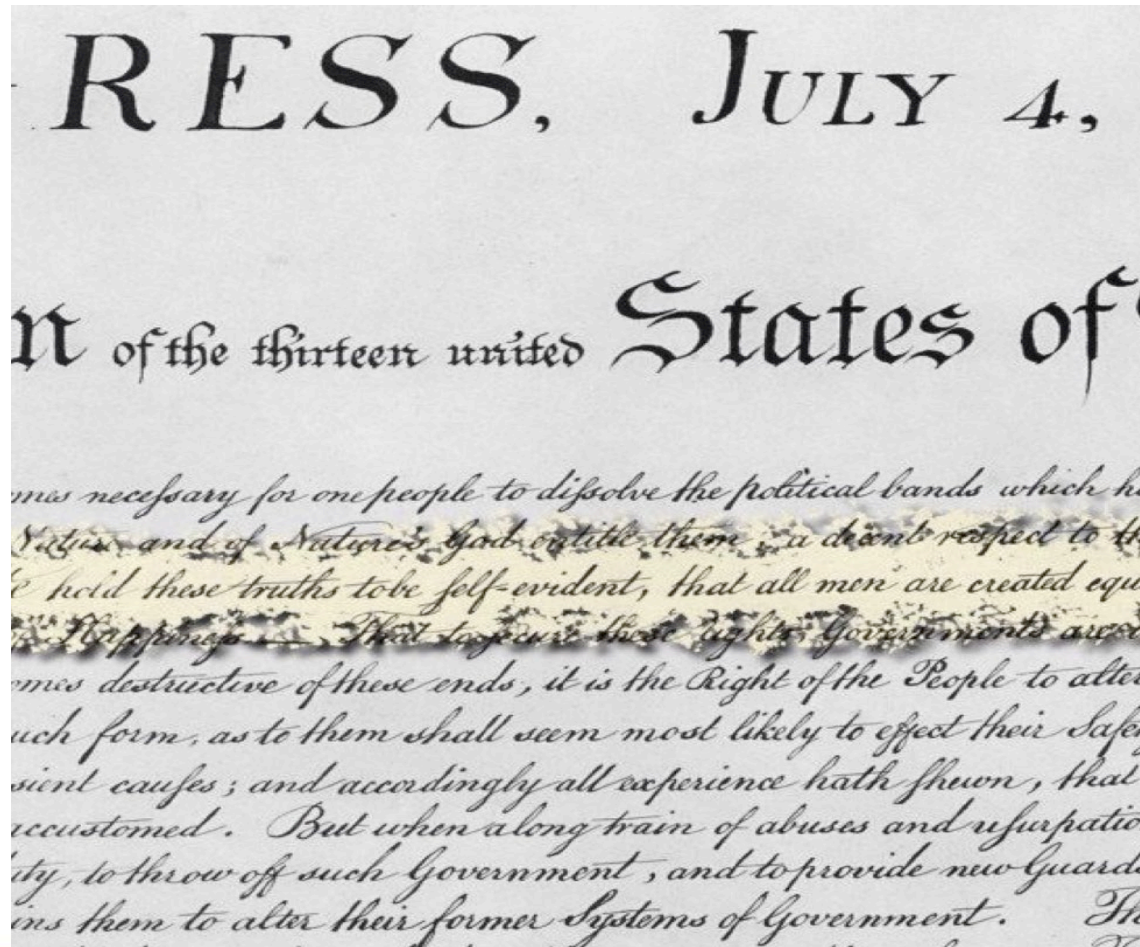 RESS, JULY 4,
n of the thirteen united States of
omes necessary for one people to dissolve the political bands which h
Nature and of Nature's God entitle them, a decent respect to th
hold these truths to be self-evident, that all men are created equ
Happiness — That to secure these rights, Governments are i
omes destructive of these ends, it is the Right of the People to alter
uch form, as to them shall seem most likely to effect their Safe
sient causes; and accordingly all experience hath shewn, that
accustomed. But when a long train of abuses and usurpatio
uty, to throw off such Government, and to provide new Guards
ins them to alter their former Systems of Government. Th